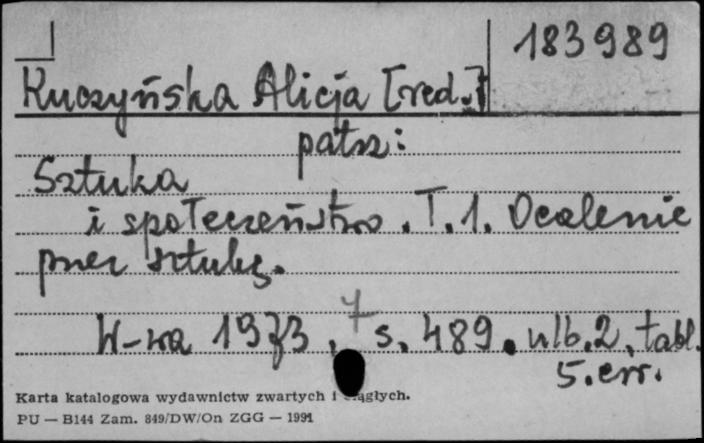 183989
Kuczyńska Alicja [red.]
patrz:
Sztuka
i społeczeństwo. T. 1. Ocalenie
przez sztukę.
W-wa 1973, s. 489. nlb. 2, tabl.
5. err.
Karta katalogowa wydawnictw zwartych i ciągłych.
PU — B144 Zam. 849/DW/On ZGG — 1991